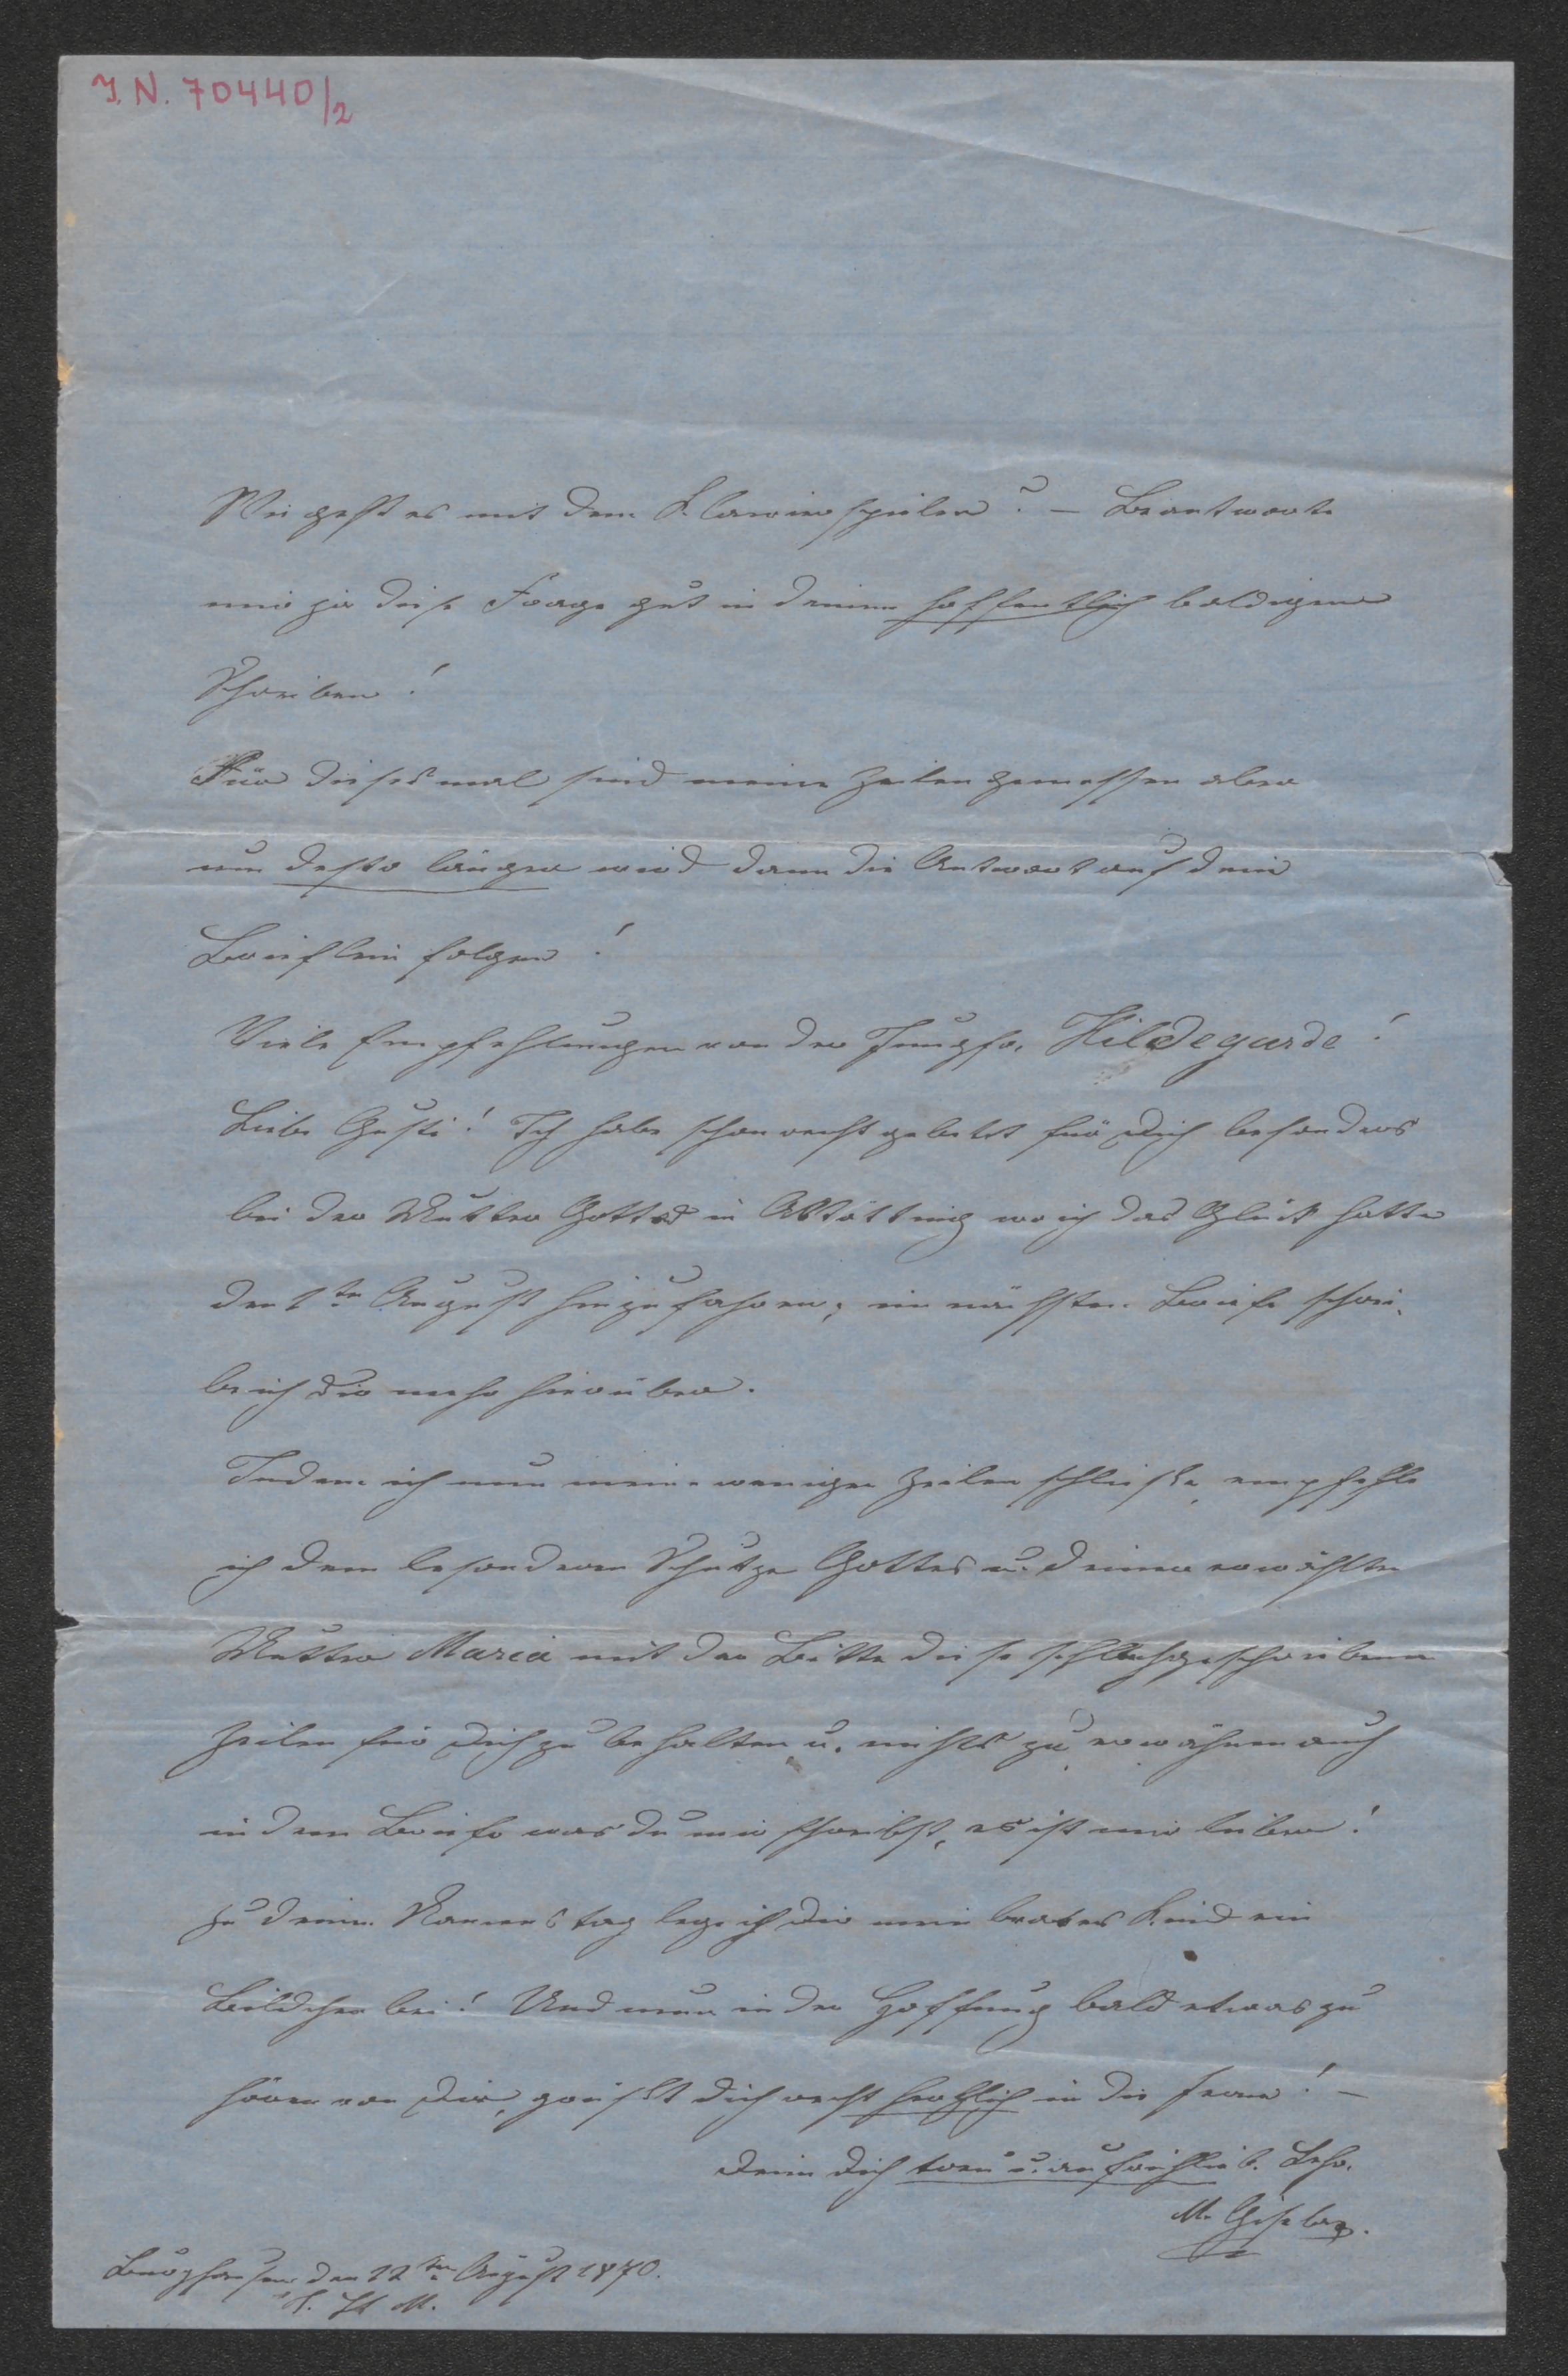 J. N. 70440/2
Wie geht es mit dem Klavierspielen? – Beantworte
mir ja diese Frage gut in deinem hoffentlich baldigen
Schreiben!
Für diesesmal sind meine Zeilen gemessen aber
um desto länger wird dann die Antwort auf dein
Brieflein folgen!
Viele Empfehlungen von der Jungfr. Hildegarde!
Liebe Gusti! Ich habe schon recht gebetet für Dich besonders
bei der Mutter Gottes in Altötting wo ich das Glück hatte
den 1ten August hinzufahren; im nächsten Briefe schrei-
be ich Dir mehr hierüber.
Indem ich nun meine wenigen Zeilen schließe, empfehle
ich dem besonderen Schutze Gottes u. deiner erwählten
Mutter Maria mit der Bitte diese schlechtgeschriebenen
Zeilen für Dich zu behalten u. nichts zu erwähnen auch
in dem Briefe was du mir schreibst, es ist mir lieber!
Zu deinem Namenstag lege ich Dir mein braves Kind ein
Bildchen bei! Und nun in der Hoffnung bald etwas zu
hören von Dir, grüßt Dich recht herzlich in die Ferne! –
Deine Dich treu u. aufrichtig lieb. Lehr.
M. Gisela
Burghausen den 12ten August 1870.